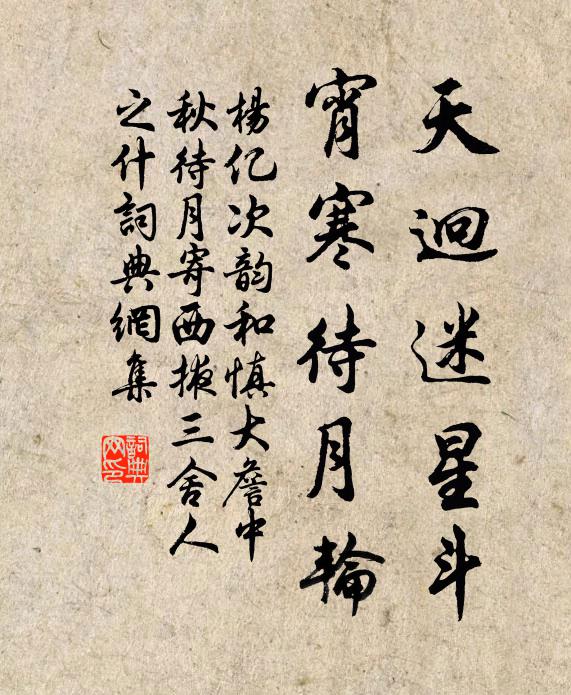 天迥迷星斗
宵寒待月輪
楊亿次韵和慎大詹中
秋待月寄西掖三舍人
之什詞典網集
詞典网印